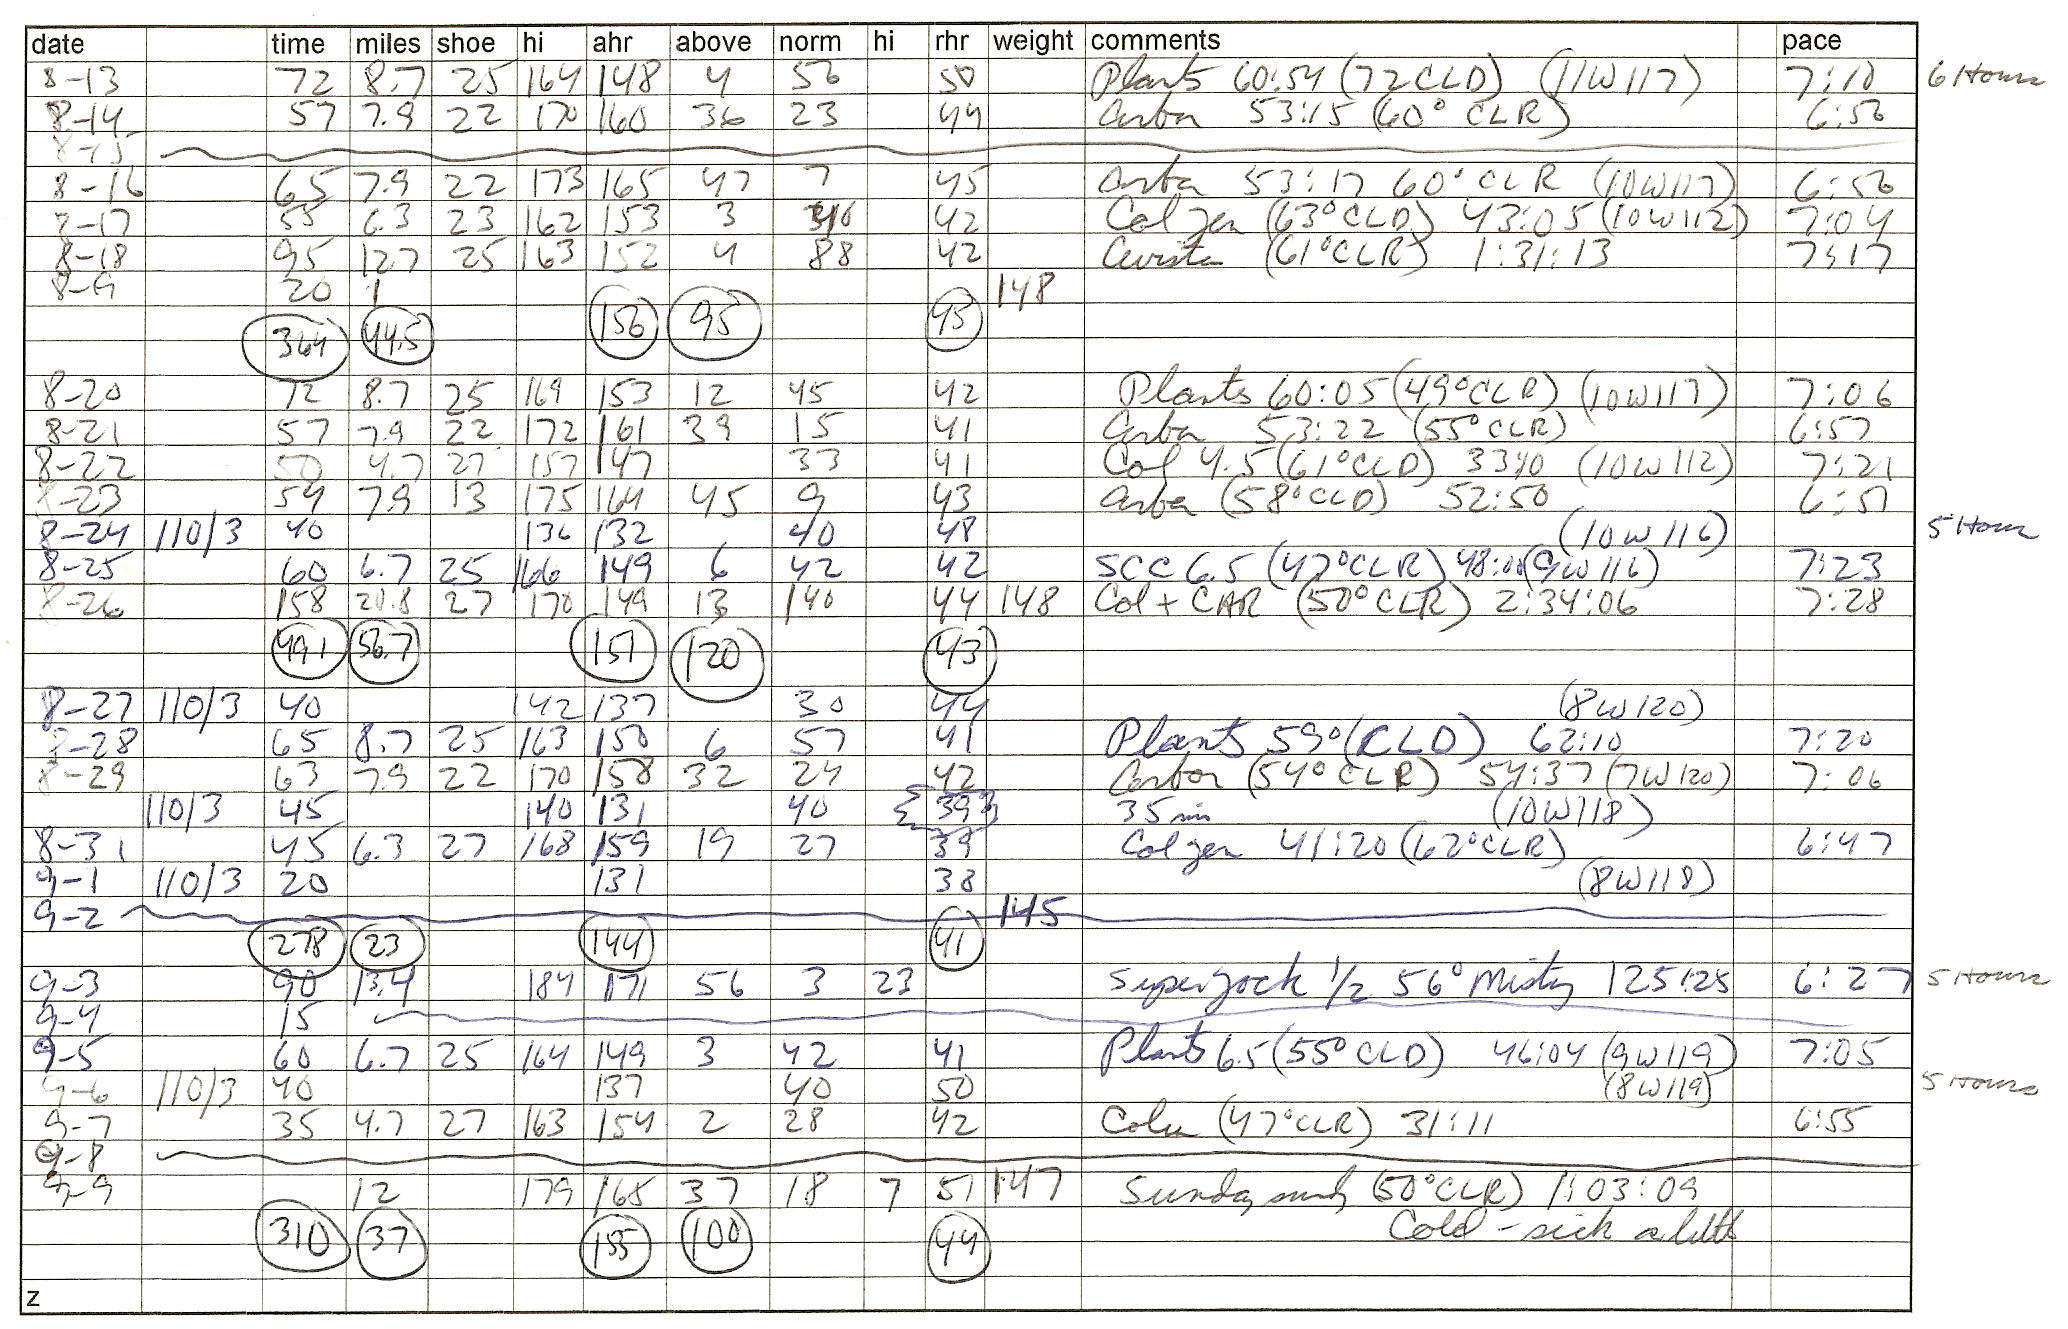 date time miles shoe hi ahr above norm hi rhr weight comments pace
8-13 72 8.7 25 164 148 4 56 50 Plants 60:54 (72 CLD) (11W117) 7:10 6 Hours
8-14 57 7.9 22 170 160 36 23 44 Arbor 53:15 (60° CLR) 6:56
8-15
8-16 65 7.9 22 173 165 47 7 45 Arbor 53:17 60° CLR (10W117) 6:56
8-17 55 6.3 23 162 153 3 42 Col gen (63° CLD) 43:05 (10W112) 7:04
8-18 95 12.7 25 163 152 4 88 42 (61° CLR) 1:31:13 7:17
8-9 20 1 148
364 44.5 156 95 45
8-20 72 8.7 25 169 153 12 45 42 Plants 60:05 (49° CLR) (10W117) 7:06
8-21 57 7.9 22 172 161 39 15 41 Arbor 53:22 (55° CLR) 6:57
8-22 50 4.7 27 157 147 33 41 Col 4.5 (61° CLD) 33:10 (10W112) 7:21
8-23 54 7.9 13 175 164 45 9 43 Arbor (58° CLD) 52:50 6:51
8-24 110/3 40 136 132 40 48 (10W116) 5 Hour
8-25 60 6.7 25 166 149 6 42 42 SCC 6.5 (47° CLR) 48:00 (9W116) 7:23
8-26 158 20.8 27 170 149 13 140 44 148 Col + CAR (50° CLR) 2:34:06 7:28
491 56.7 151 120 43
8-27 110/3 40 142 137 30 44 (8W120)
8-28 65 8.7 25 163 150 6 57 41 Plants 59° (CLD) 62:10 7:20
8-29 63 7.9 22 170 158 32 24 42 Arbor (54° CLR) 54:37 (7W120) 7:06
110/3 45 140 131 40 39 35 min (10W118)
8-31 45 6.3 27 168 159 19 27 39 Col gen 41:20 (62° CLR) 6:47
9-1 110/3 20 131 38 (8W118)
9-2 145
278 23 144 41
9-3 90 13.4 184 171 56 3 23 Superjock 1/2 56° Misty 125:25 6:27 5 Hours
9-4 15
9-5 60 6.7 25 164 149 3 42 41 Plants 6.5 (55° CLD) 46:04 (9W119) 7:05
9-6 110/3 40 137 40 50 (8W119) 5 Hours
9-7 35 4.7 27 163 154 2 28 42 (47° CLR) 31:11 6:55
9-8
9-9 12 179 165 37 18 7 51 147 Sunday (50° CLR) 1:03:09
Cold - sick a little
310 37 155 100 44
z